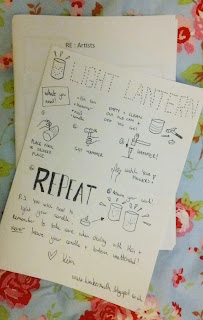 RE: Artists
LIGHT LANTERN
What you need!
• Tin can
• Hammer
• Nail
• Candle
EMPTY + CLEAN
OUT TIN CAN +
CUT OFF
LID
PLACE NAIL
IN DESIRED
PLACE
GET HAMMER
HAMMER!
(Pssst watch your
fingers!)
REPEAT
Admire your work!
P.S. You will need to
light your candle.
Remember to take care when dealing with this +
never leave your candle + lantern unattended!